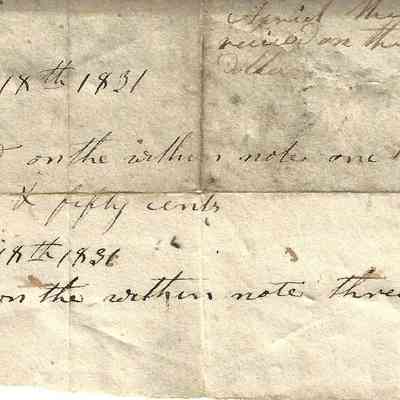 April the
received on the
dollars
18th 1831
on the within note one
& fifty cents
18th 1831
on the within note three